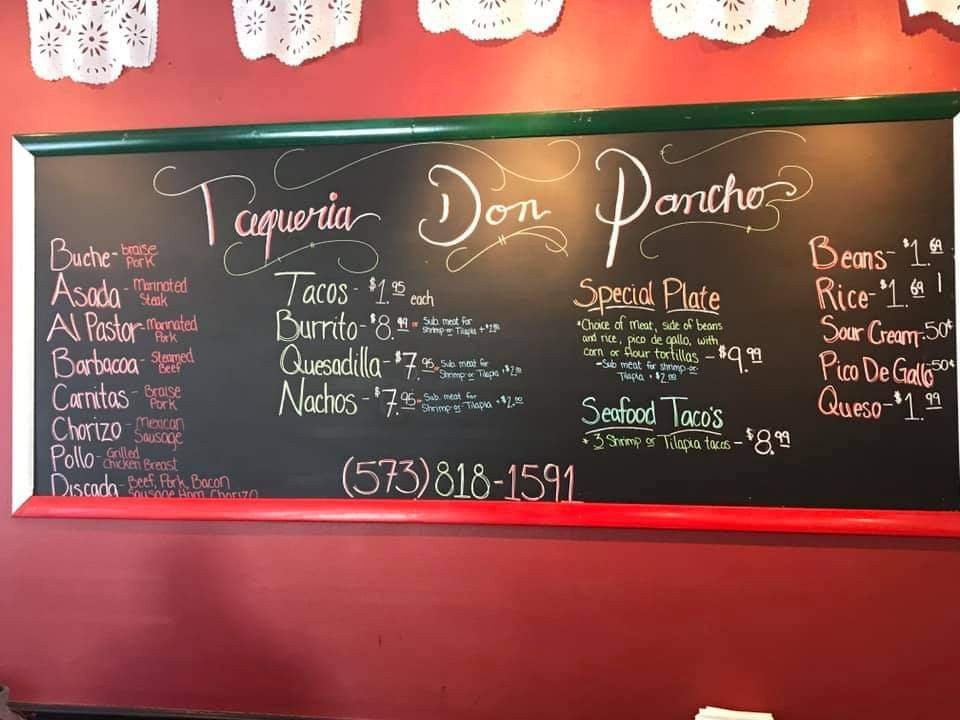 Taqueria Don Pancho
Buche - braise
Pork
Asada - Marinated
Steak
Al Pastor - marinated
Pork
Barbacoa - Steamed
Beef
Carnitas - Braise
Pork
Chorizo - Mexican
Sausage
Pollo - Grilled
Chicken Breast
Discada - Beef, Pork, Bacon
Sausage Ham Chorizo
Tacos - $1.95 each
Burrito - $8.99 - Sub. meat for
shrimp or Tilapia +$2.00
Quesadilla - $7.95 - Sub. meat for
Shrimp or Tilapia +$2.00
Nachos - $7.95 - Sub. meat for
Shrimp or Tilapia +$2.00
(573) 818-1591
Special Plate
*Choice of meat, side of beans
and rice, pico de gallo, with
corn or flour tortillas - $9.99
- Sub meat for shrimp or
Tilapia +$2.00
Seafood Taco's
* 3 Shrimp or Tilapia tacos - $8.99
Beans - $1.69
Rice - $1.69
Sour Cream - .50¢
Pico De Gallo - .50¢
Queso - $1.99